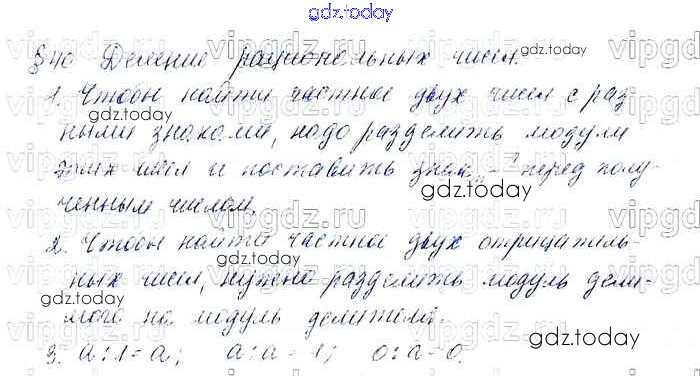 gdz.today
§40 Деление рациональных чисел.
1. Чтобы найти частное двух чисел с раз
ными знаками, надо разделить модули
этих чисел и поставить знак „-" перед полу-
ченным числом.
2. Чтобы найти частное двух отрицатель-
ных чисел, нужно разделить модуль дели-
мого на модуль делителя.
3. a:1=a; a:a=1; 0:a=0.